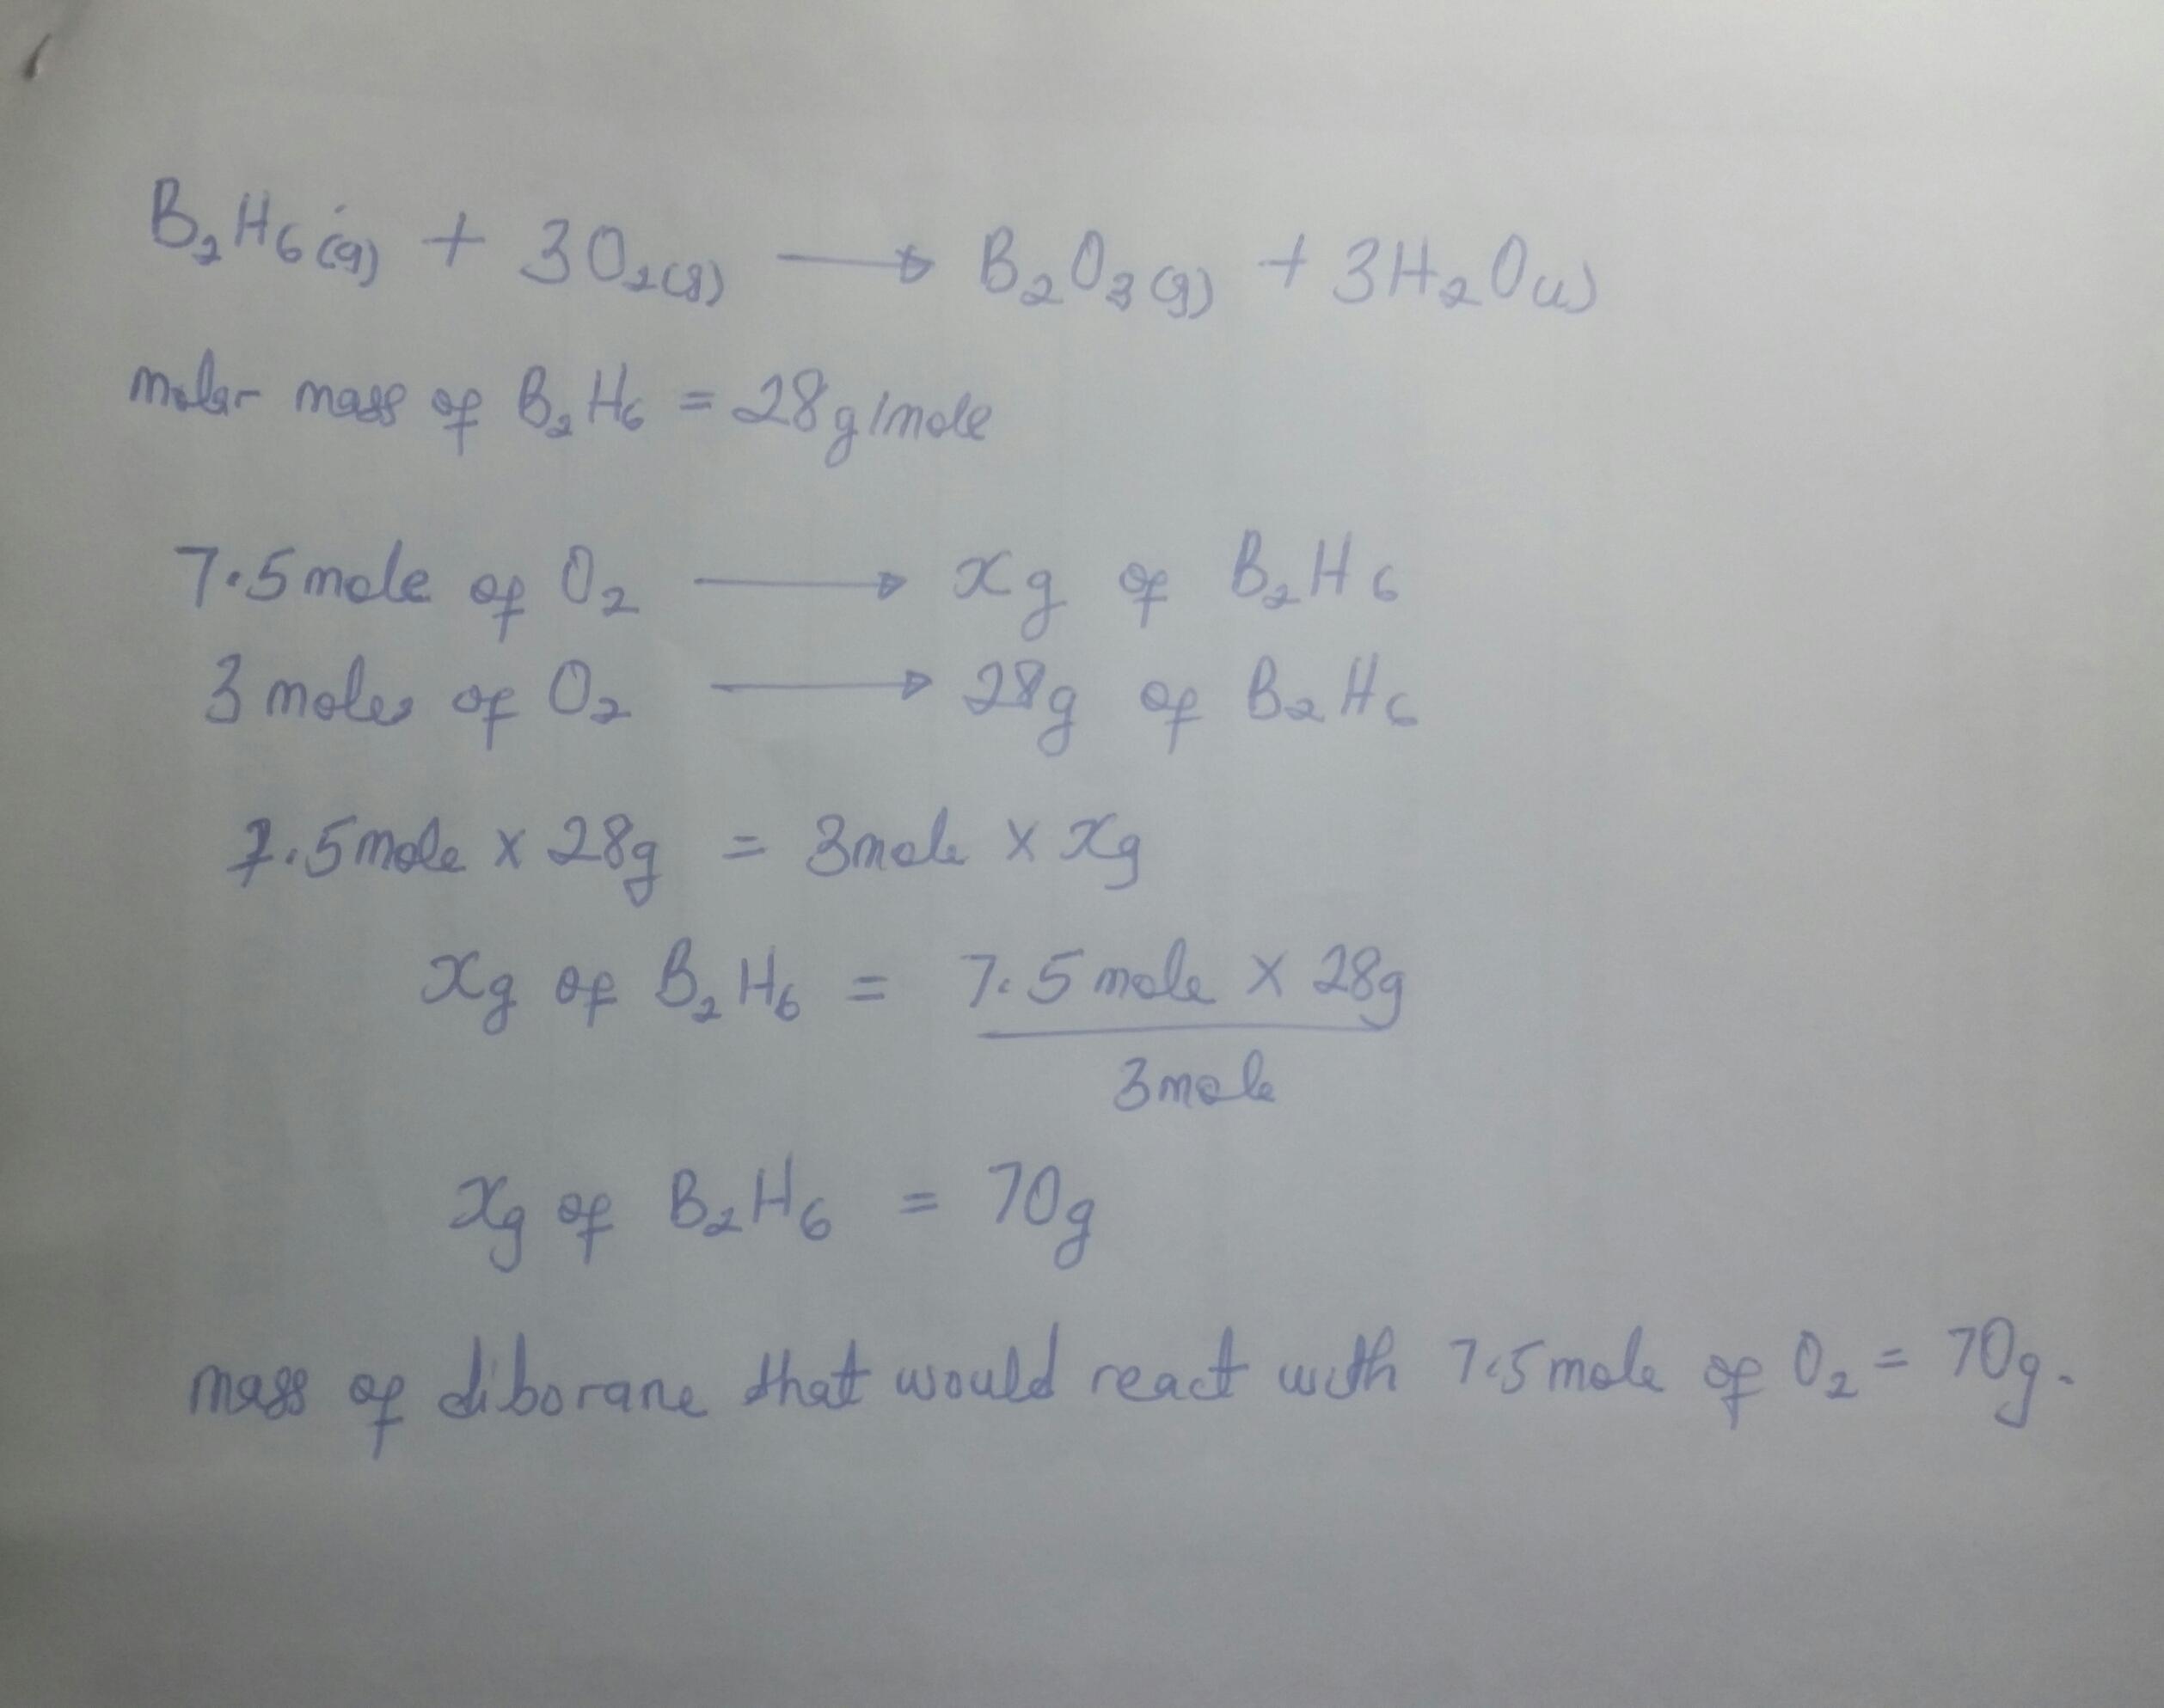 B₂H₆(g) + 3O₂(g) → B₂O₃(g) + 3H₂O(l)
molar mass of B₂H₆ = 28g/mole
7.5mole of O₂ → xg of B₂H₆
3 moles of O₂ → 28g of B₂H₆
7.5mole x 28g = 3mole x xg
xg of B₂H₆ = 7.5mole x 28g
3mole
xg of B₂H₆ = 70g
mass of diborane that would react with 7.5mole of O₂ = 70g.